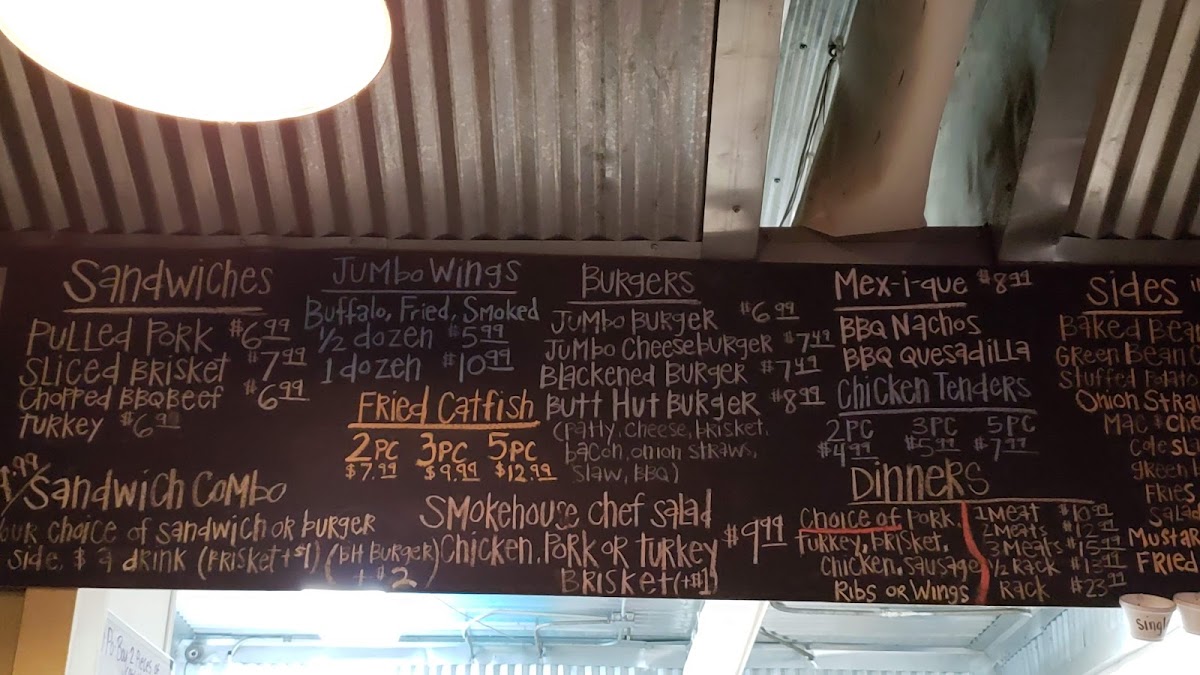 Sandwiches
Pulled Pork $6.99
Sliced Brisket $7.99
Chopped BBQ Beef $6.99
Turkey $6.99
Sandwich Combo
our choice of sandwich or burger
side, $ a drink (Brisket +$1) (BH Burger)
+$2
Jumbo Wings
Buffalo, Fried, Smoked
1/2 dozen $5.99
1 dozen $10.99
Fried Catfish
2pc 3pc 5pc
$7.99 $9.99 $12.99
Burgers
Jumbo Burger $6.99
Jumbo Cheeseburger $7.49
Blackened Burger $7.49
Butt Hut Burger $8.99
(patty, cheese, brisket,
bacon, onion straws,
slaw, BBQ)
Smokehouse chef salad
Chicken, Pork or Turkey $9.99
Brisket (+$1)
Mex-i-que $8.99
BBQ Nachos
BBQ Quesadilla
Chicken Tenders
2pc 3pc 5pc
$4.99 $5.99 $7.99
Dinners
Choice of Pork,
Turkey, Brisket,
Chicken, Sausage
Ribs or Wings
1 Meat $10.99
2 Meats $12.99
3 Meats $15.99
1/2 Rack $13.99
Rack $23.99
Sides
Baked Bea
Green Bean
Stuffed Potato
Onion Stra
Mac & Che
Cole Sl
Green
Fries
Salad
Mustar
Fried
Singl
Po-Boy 2 Pieces